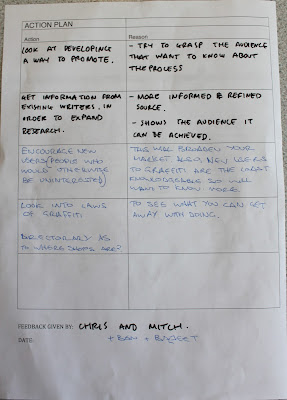 ACTION PLAN
Action Reason
LOOK AT DEVELOPING
A WAY TO PROMOTE.
- TRY TO GRASP THE AUDIENCE
THAT WANT TO KNOW ABOUT
THE PROCESS
GET INFORMATION FROM
EXISTING WRITERS, IN
ORDER TO EXPAND
RESEARCH.
- MORE INFORMED & REFINED
SOURCE.
- SHOWS THE AUDIENCE IT
CAN BE ACHIEVED.
ENCOURAGE NEW
USERS (PEOPLE WHO
WOULD OTHERWISE
BE UNINTERESTED)
THIS WILL BROADEN YOUR
MARKET ALSO, NEW USERS
TO GRAFFITI ARE THE LEAST
KNOWLEDGEABLE SO WILL
WANT TO KNOW MORE.
LOOK INTO LAWS
OF GRAFFITI
TO SEE WHAT YOU CAN GET
AWAY WITH DOING.
AS
TO WHERE SHOPS ARE?
FEEDBACK GIVEN BY: CHRIS AND MITCH.
DATE: + +